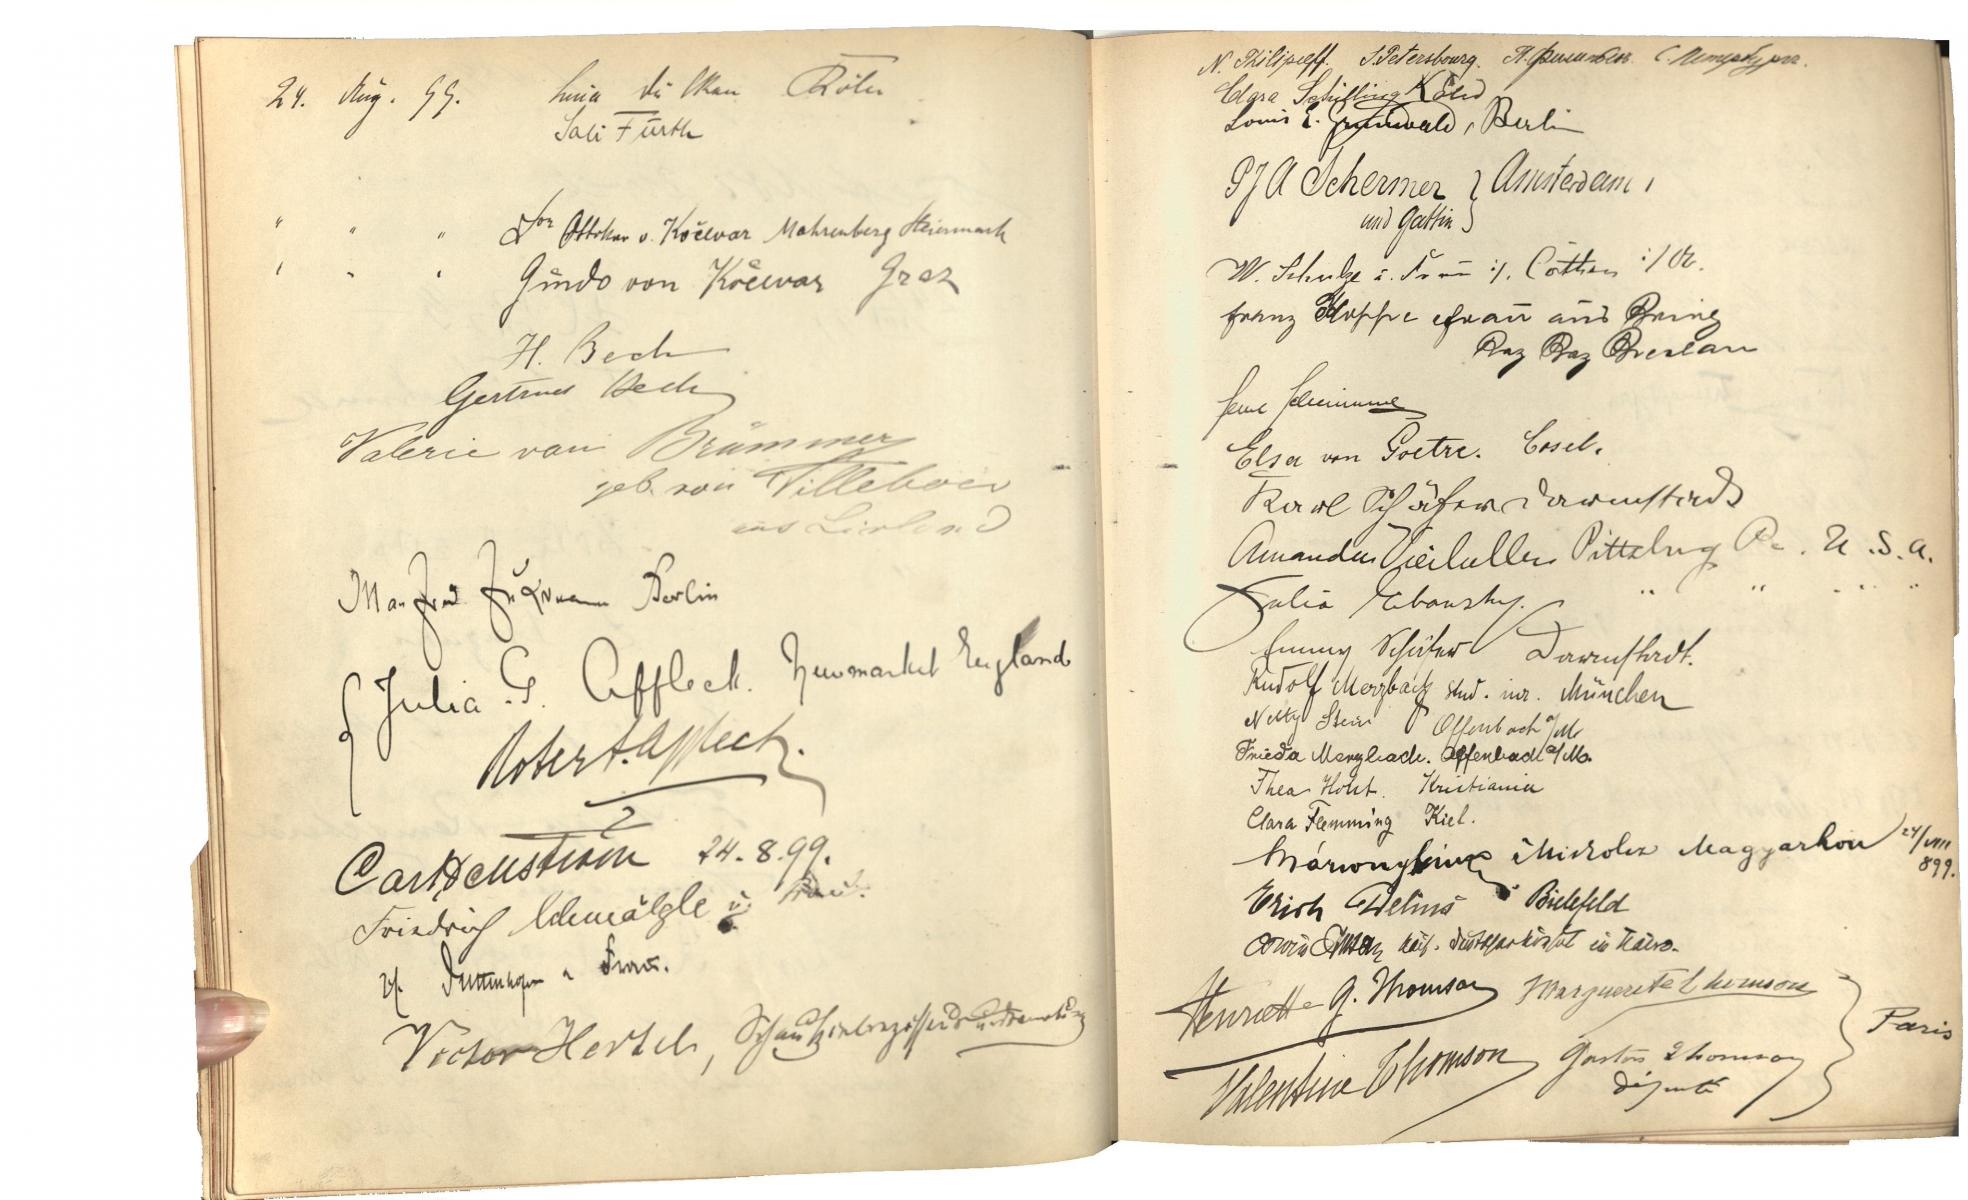 24. Aug. 99. Köln
Sali Fürth
" " " Ottokar v. Kočevar Mahrenberg Steiermark
" " " Guido von Kočevar Graz
H. Bech
Gertrud Bech
Valerie von Brümmer
geb. von
aus Livland
Manfred Berlin
Julia G. Affleck. Newmarket England
Robert Affleck.
24.8.99.
Friedrich Schmälzle u. Frau.
u Frau.
Victor Hertel,
N. Philipeff. S. Petersbourg.
Clara Schilling Köln
Louis E. Grunwald, Berlin
PJA Schermer } Amsterdam
und Gattin
W. Schulze u. Frau Cöthen
Franz Hoppe Frau aus Brieg
Breslau
Elsa von Goetze. Cosel.
Karl Schäfer Darmstadt
Amanda Pittsburg Pa. U.S.A.
Julia " " " "
Emmy Schäfer Darmstadt.
Rudolf Merzbach stud. iur. München
Netty Stein Offenbach a/M.
Frieda Merzbach. Offenbach a/M.
Thea Holst. Kristiania
Clara Flemming Kiel.
Miskolcz Magyarhon 24/VIII
899.
Erich Delius Bielefeld
Henriette G. Thomson Marguerite Thomson
Paris
Valentine Thomson Gaston Thomson
député